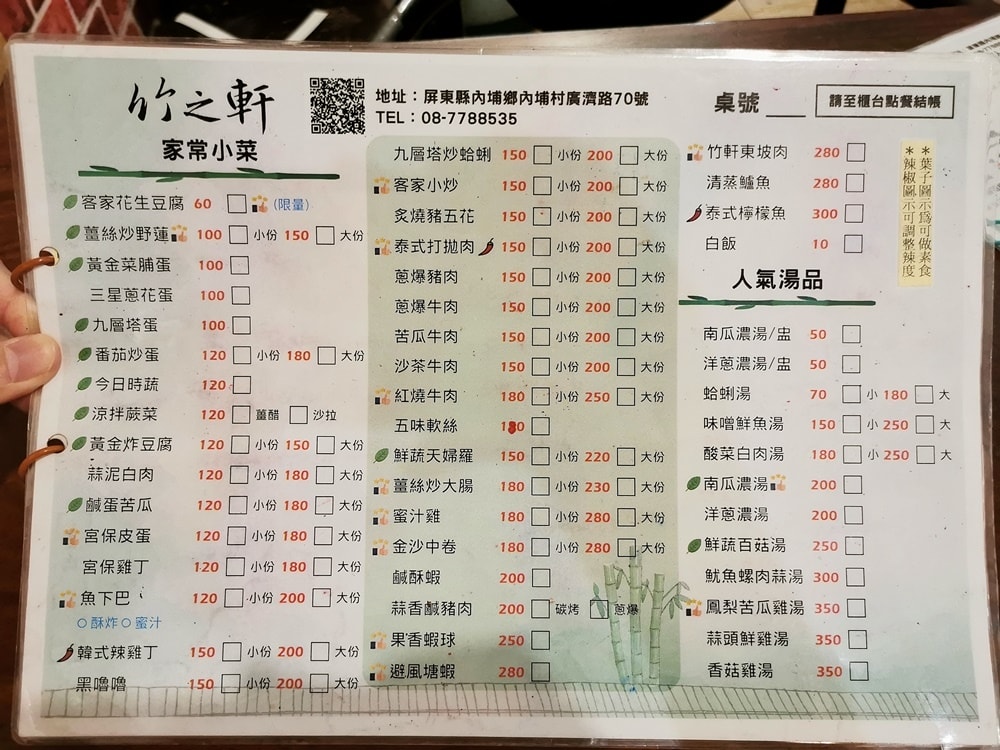 竹之軒
地址：屏東縣內埔鄉內埔村廣濟路70號
TEL：08-7788535
桌號
請至櫃台點餐結帳
家常小菜
客家花生豆腐 60 (限量)
薑絲炒野蓮 100 小份 150 大份
黃金菜脯蛋 100
三星蔥花蛋 100
九層塔蛋 100
番茄炒蛋 120 小份 180 大份
今日時蔬 120
涼拌蕨菜 120 薑醋 沙拉
黃金炸豆腐 120 小份 150 大份
蒜泥白肉 120 小份 180 大份
鹹蛋苦瓜 120 小份 180 大份
宮保皮蛋 120 小份 180 大份
宮保雞丁 120 小份 180 大份
魚下巴 120 小份 200 大份
酥炸 蜜汁
韓式辣雞丁 150 小份 200 大份
黑嚕嚕 150 小份 200 大份
九層塔炒蛤蜊 150 小份 200 大份
客家小炒 150 小份 200 大份
炙燒豬五花 150 小份 200 大份
泰式打拋肉 150 小份 200 大份
蔥爆豬肉 150 小份 200 大份
蔥爆牛肉 150 小份 200 大份
苦瓜牛肉 150 小份 200 大份
沙茶牛肉 150 小份 200 大份
紅燒牛肉 180 小份 250 大份
五味軟絲 180
鮮蔬天婦羅 150 小份 220 大份
薑絲炒大腸 180 小份 230 大份
蜜汁雞 180 小份 280 大份
金沙中卷 180 小份 280 大份
鹹酥蝦 200
蒜香鹹豬肉 200 碳烤 蔥爆
果香蝦球 250
避風塘蝦 280
竹軒東坡肉 280
清蒸鱸魚 280
泰式檸檬魚 300
白飯 10
*葉子圖示為可做素食
*辣椒圖示可調整辣度
人氣湯品
南瓜濃湯/盅 50
洋蔥濃湯/盅 50
蛤蜊湯 70 小 180 大
味噌鮮魚湯 150 小 250 大
酸菜白肉湯 180 小 250 大
南瓜濃湯 200
洋蔥濃湯 200
鮮蔬百菇湯 250
魷魚螺肉蒜湯 300
鳳梨苦瓜雞湯 350
蒜頭鮮雞湯 350
香菇雞湯 350